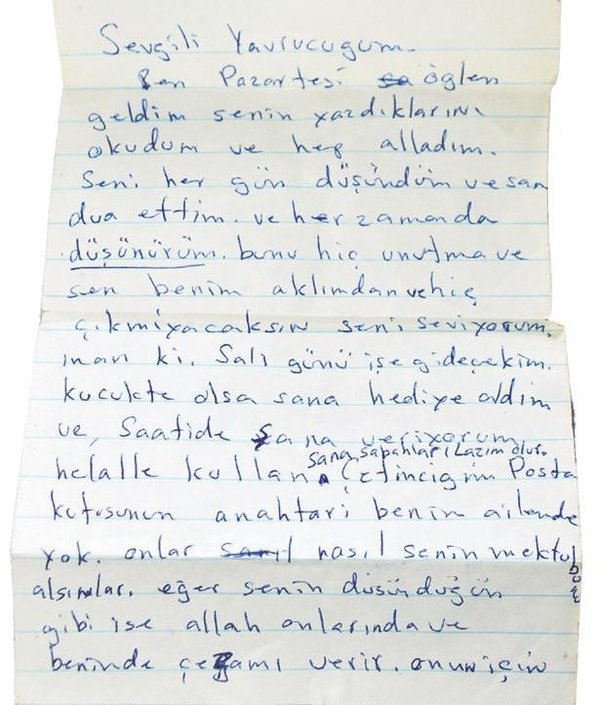 Sevgili Yavrucugum.
Ben Pazartesi öglen
geldim senin yazdıklarını
okudum ve hep alladım.
Seni her gün düşündüm ve san
dua ettim. ve her zamanda
düşünürüm. bunu hiç unutma ve
sen benim aklımdan ve hiç
çıkmiyacaksın seni seviyorum,
inan ki. Salı günü işe gideçekim.
kucukte olsa sana hediye aldim
ve, Saatide sana veriyorum
sana sapahları Lazım olur.
helalle kullan. Çetincigim Posta
kutusunun anahtari benim ailende
yok. onlar nasıl senin mektubunu
alsınlar. eğer senin düsündüğün
gibi ise allah onlarında ve
beninde çezamı verir. onun için